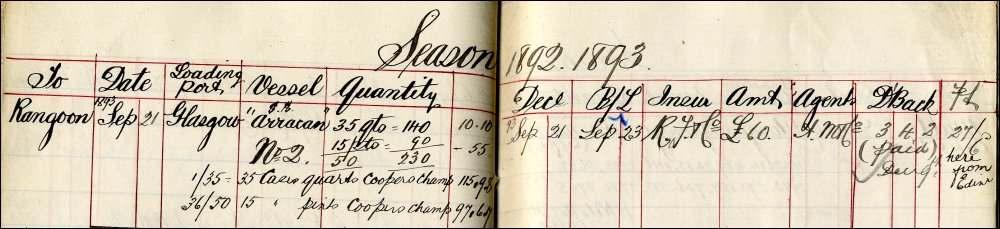 Season 1892. 1893.
To Date Loading Port Vessel Quantity Decl B/L Insur Amt Agents D'Back Ft
Rangoon 1893 Sep 21 Glasgow "S.S. Arracan" 35 qts = 140 10-10 93 Sep 21 Sep 23 R. F. & Co £60. 3 4 2 27/6
No 2. 15 pts = 90 - 55 (Paid)
50 230 here from Edinr
1/35 = 35 Cases quarts Coopers champ 115,93
36/50 15 " pints Coopers champ 97,6